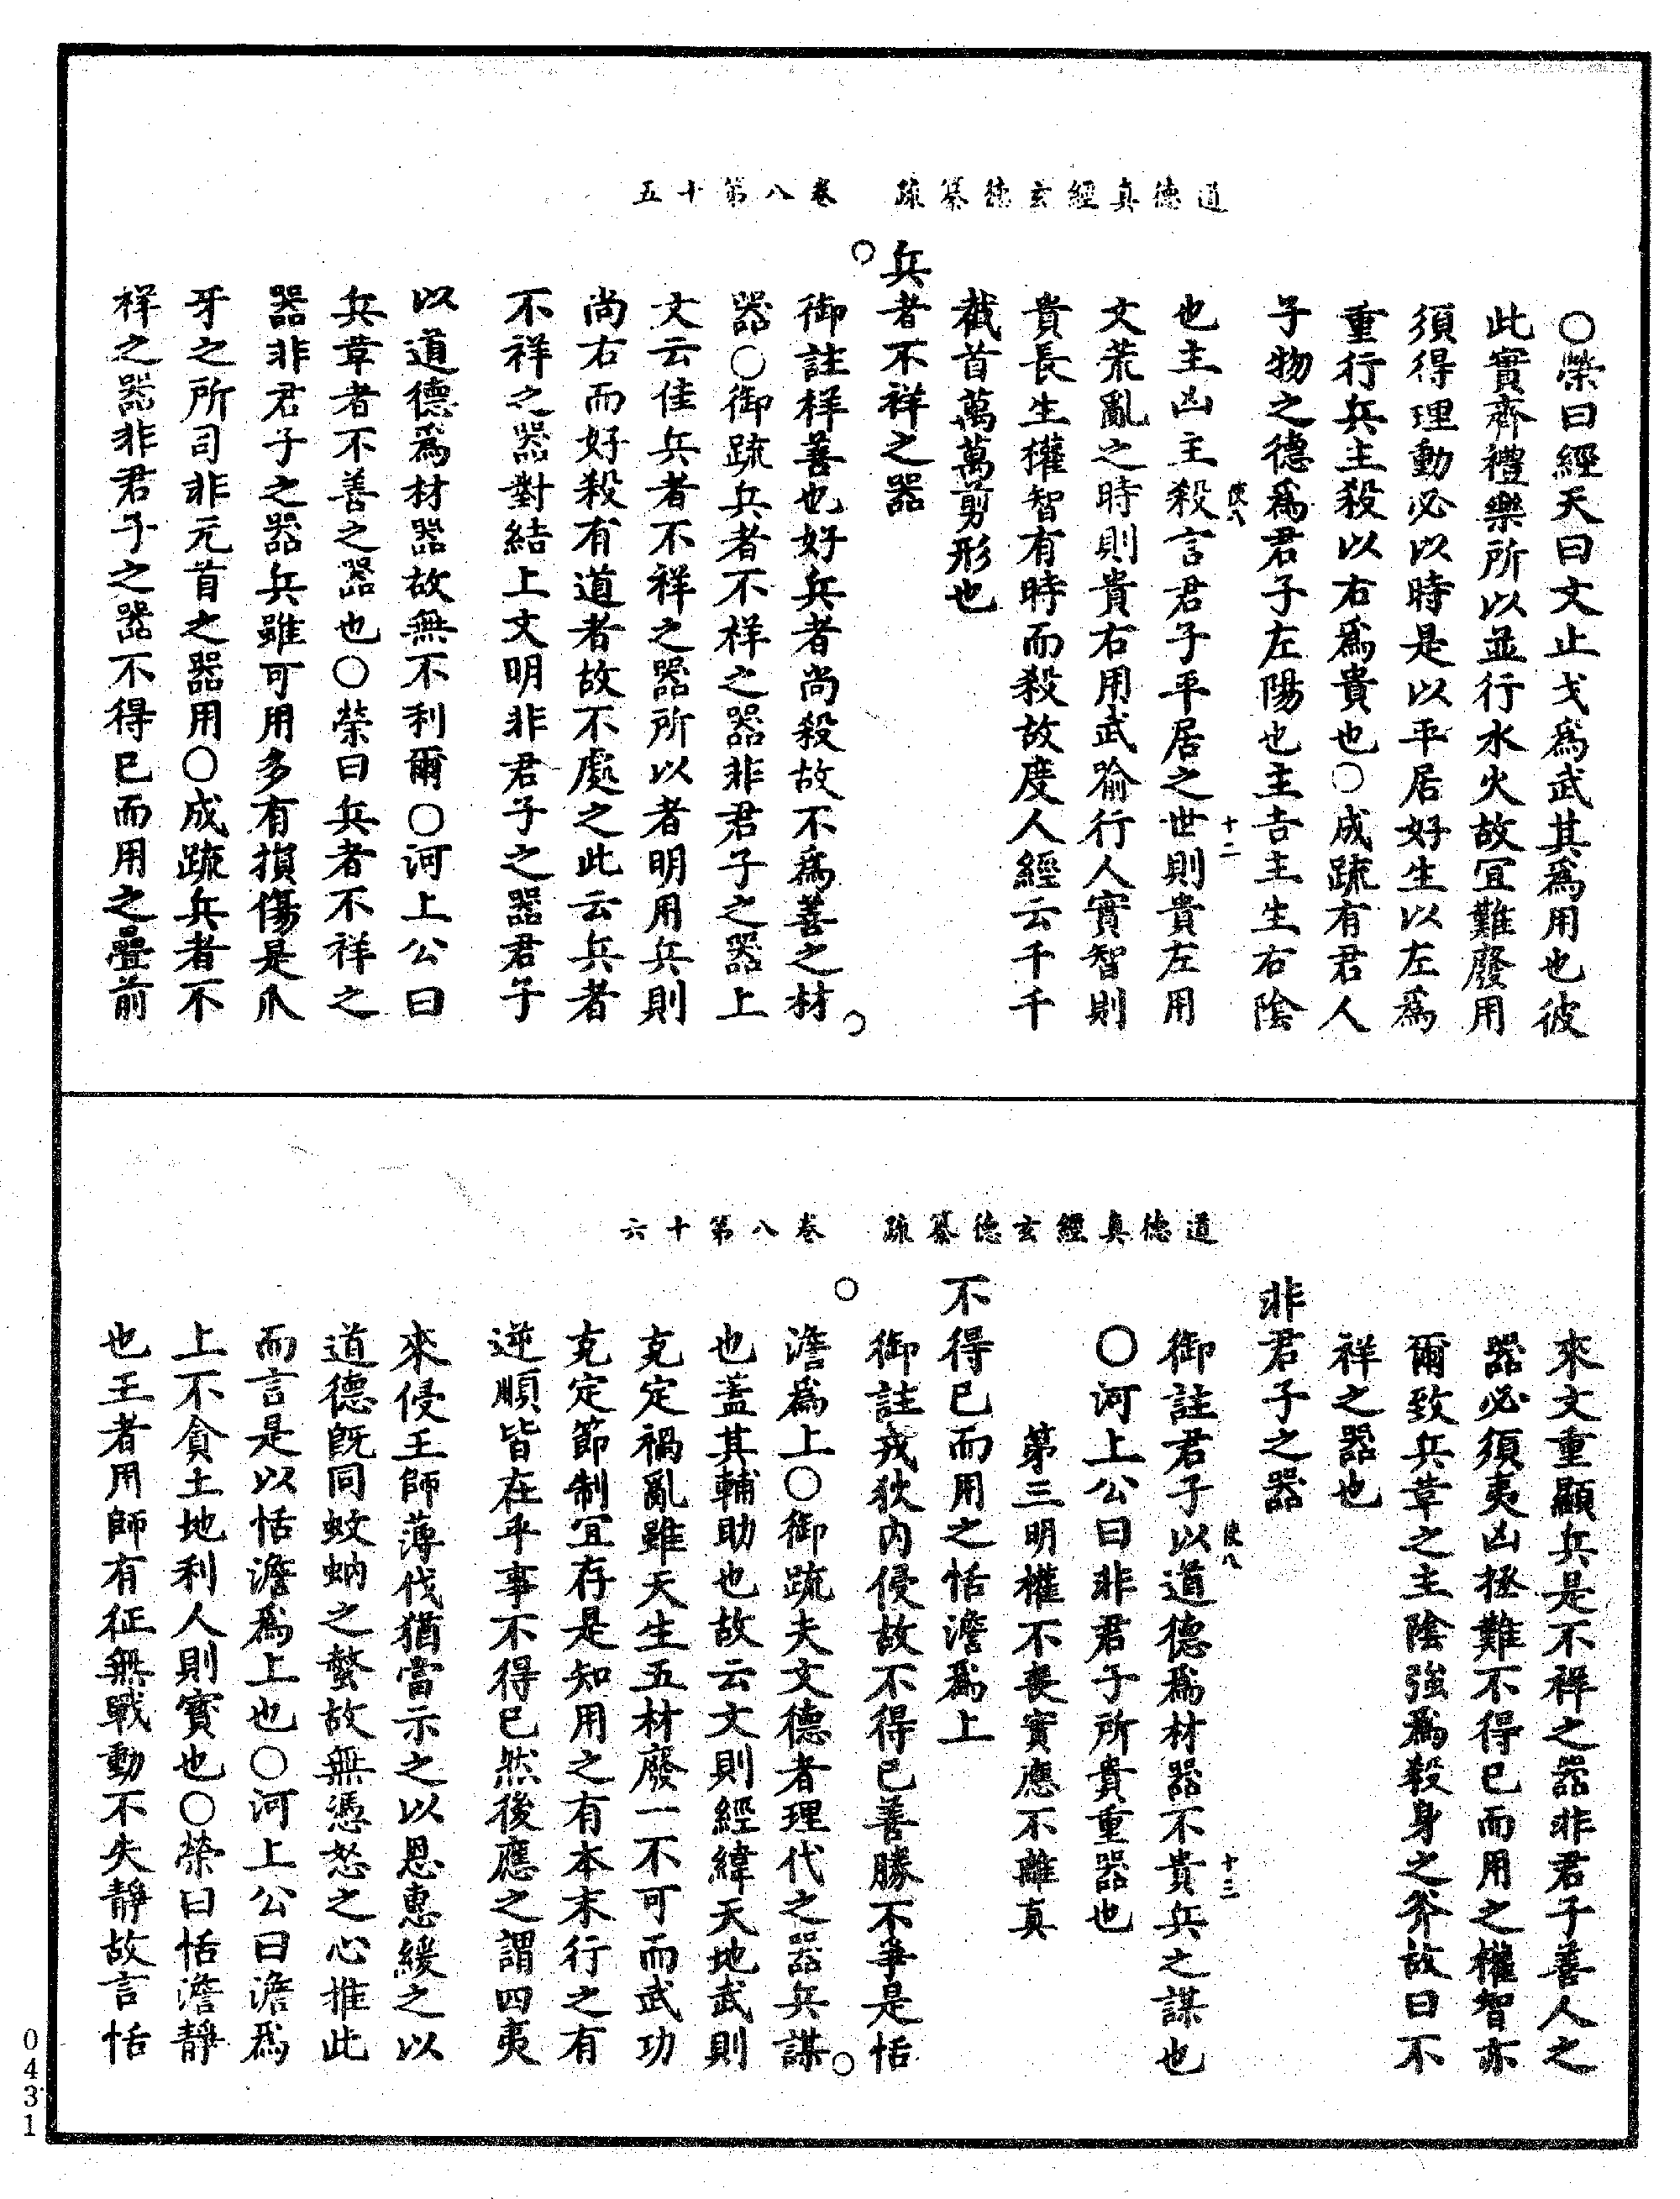 道德真經玄德纂疏　卷八第十五
○榮曰經天曰文止戈爲武其爲用也彼
此實齊禮樂所以並行水火故宜難廢用
須得理動必以時是以平居好生以左爲
重行兵主殺以右爲貴也○成疏有君人
子物之德爲君子左陽也主吉主生右陰
也主凶主殺言君子平居之世則貴左用
文荒亂之時則貴右用武喻行人實智則
貴長生權智有時而殺故度人經云千千
截首萬萬剪形也
兵者不祥之器
御註祥善也好兵者尚殺故不爲善之材
器○御疏兵者不祥之器非君子之器上
文云佳兵者不祥之器所以者明用兵則
尚右而好殺有道者故不處之此云兵者
不祥之器對結上文明非君子之器君子
以道德爲材器故無不利爾○河上公曰
兵革者不善之器也○榮曰兵者不祥之
器非君子之器兵雖可用多有損傷是爪
牙之所司非元首之器用○成疏兵者不
祥之器非君子之器不得已而用之疊前
道德真經玄德纂疏　卷八第十六
來文重顯兵是不祥之器非君子善人之
器必須夷凶拯難不得已而用之權智亦
爾致兵革之主陰強爲殺身之斧故曰不
祥之器也
非君子之器
御註君子以道德爲材器不貴兵之謀也
○河上公曰非君子所貴重器也
第三明權不喪實應不離真
不得已而用之恬澹爲上
御註戎狄內侵故不得已善勝不爭是恬
澹爲上○御疏夫文德者理代之器兵謀
也蓋其輔助也故云文則經緯天地武則
克定禍亂雖天生五材廢一不可而武功
克定節制宜存是知用之有本末行之有
逆順皆在乎事不得已然後應之謂四夷
來侵王師薄伐猶當示之以恩惠緩之以
道德旣同蚊蚋之螫故無憑怒之心推此
而言是以恬澹爲上也○河上公曰澹爲
上不貪土地利人則寶也○榮曰恬澹靜
也王者用師有征無戰動不失靜故言恬
0431